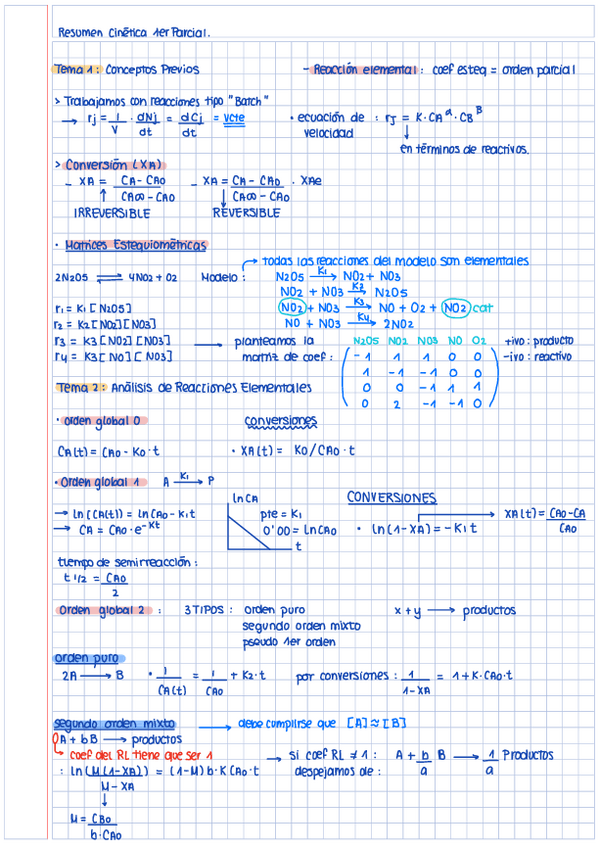 Resumen Cinética 1er Parcial.
Tema 1: Conceptos Previos
- Reacción elemental: coef esteq = orden parcial
> Trabajamos con reacciones tipo "Batch"
→ rj = 1/V · dNj/dt = dCj/dt = vcte
• ecuación de velocidad : rj = K·CA^a·CB^B
↓
en términos de reactivos.
> Conversión (XA)
- XA = (CA - CAo)/(CA∞ - CAo)
- XA = (CA - CAo)/(CA∞ - CAo) · XAe
↑ IRREVERSIBLE
↓ REVERSIBLE
• Matrices Estequiométricas
→ todas las reacciones del modelo son elementales
2N2O5 ⇌ 4NO2 + O2
Modelo: N2O5 K1→ NO2 + NO3
NO2 + NO3 K2→ N2O5
NO2 + NO3 K3→ NO + O2 + NO2 cat
NO + NO3 K4→ 2NO2
r1 = K1 [N2O5]
r2 = K2[NO2][NO3]
r3 = K3 [NO2] [NO3]
r4 = K3 [NO] [NO3]
→ planteamos la matriz de coef:
N2O5 NO2 NO3 NO O2
-1 1 1 0 0
1 -1 -1 0 0
0 0 -1 1 1
0 2 -1 -1 0
+ivo: producto
-ivo: reactivo
Tema 2: Análisis de Reacciones Elementales
• orden global 0
conversiones
CA(t) = CAo - Ko·t
• XA(t) = Ko/CAo · t
• Orden global 1 A K1→ P
→ ln(CA(t)) = ln CAo - K1t
→ CA = CAo·e^-Kt
ln CA
pte = K1
O'OO = ln CAo
t
CONVERSIONES
• ln(1-XA) = -K1t
→ XA(t) = (CAo-CA)/CAo
tiempo de semirreacción:
t 1/2 = CAo/2
Orden global 2 : 3 TIPOS: orden puro
segundo orden mixto
pseudo 1er orden
x + y → productos
orden puro
2A → B
• 1/CA(t) = 1/CAo + K2·t
por conversiones: 1/(1-XA) = 1 + K·CAo·t
segundo orden mixto
→ debe cumplirse que [A] ≈ [B]
A + bB → productos
coef del RL tiene que ser 1
→ si coef RL ≠ 1: A + b/a B → 1/a Productos
: ln (M(1-XA))/(M-XA) = (1-M) b·K CAo·t
despejamos de :
↓
M = CBo/(b·CAo)